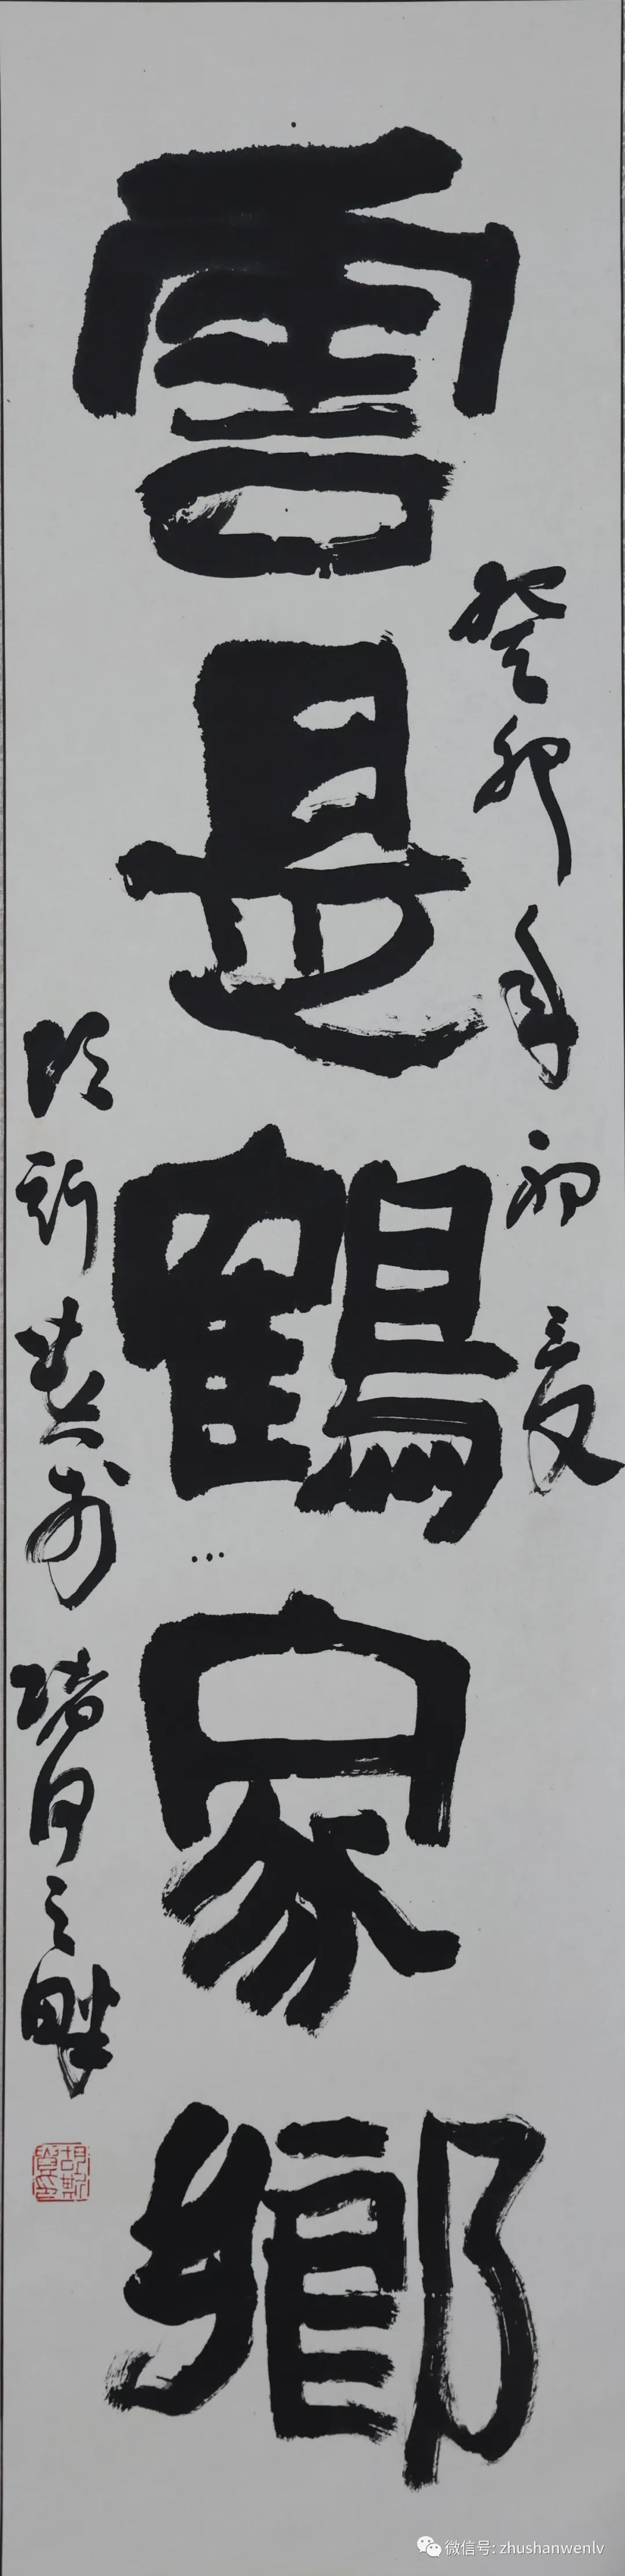 雲是鶴家鄉
癸卯年初夏
胡斯於堵河之畔
胡斯印
微信号: zhushanwenlv